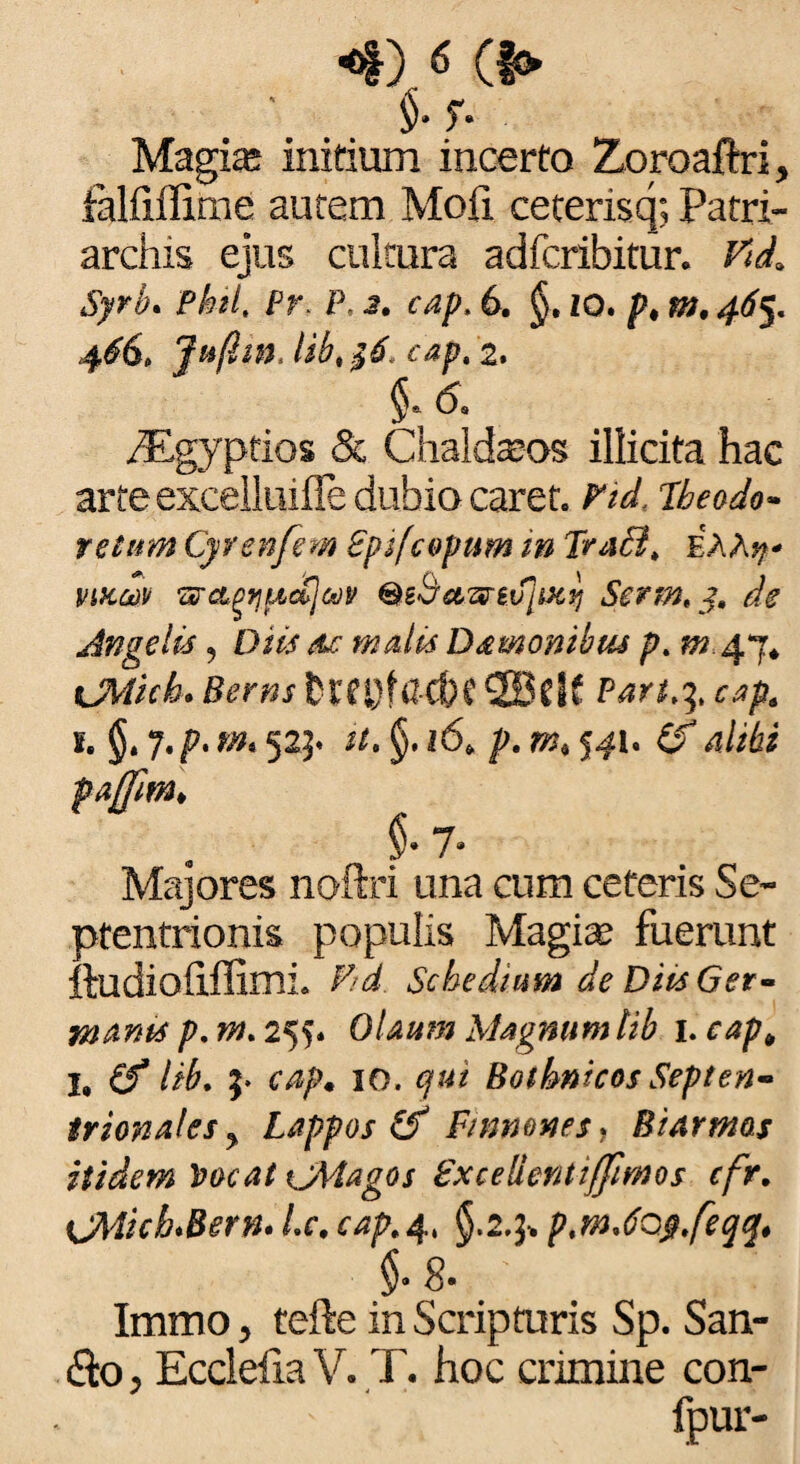 6
§. 5.
Magiæ initium incerto Zoroaſtri,
falſiſſime autem Moſi ceterisq; Patri-
archis ejus cultura adſcribitur. Vid.
Syrb. Phil. Pr. P. 2. cap. 6. §. 10. p. m. 465.
466. Juſtin. lib. 36. cap. 2.
§. 6.
Ægyptios & Chaldæos illicita hac
arte excelluiſſe dubio caret. Vid. Theodo-
retum Cyrenſem Epiſcopum in Tract. Ἑλλη-
νικῶν παθημάτων Θεραπευτικὴ Serm. 3. de
Angelis, Diis ac malis Dæmonibus p. m. 47.
Mich. Berns Dreyfache Welt Part. 3. cap.
1. §. 7. p. m. 523. it. §. 16. p. m. 541. & alibi
paſſim.
§. 7.
Majores noſtri una cum ceteris Se-
ptentrionis populis Magiæ fuerunt
ſtudioſiſſimi. Vid Schedium de Diis Ger-
manis p. m. 255. Olaum Magnum lib 1. cap.
1. & lib. 3. cap. 10. qui Bothnicos Septen-
trionales, Lappos & Finnones, Biarmos
itidem vocat Magos Excellentiſſimos cfr.
Mich. Bern. l.c. cap. 4. §.2.3. p.m.609.ſeqq.
§. 8.
Immo, teſte in Scripturis Sp. San-
cto, Eccleſia V. T. hoc crimine con-
ſpur-